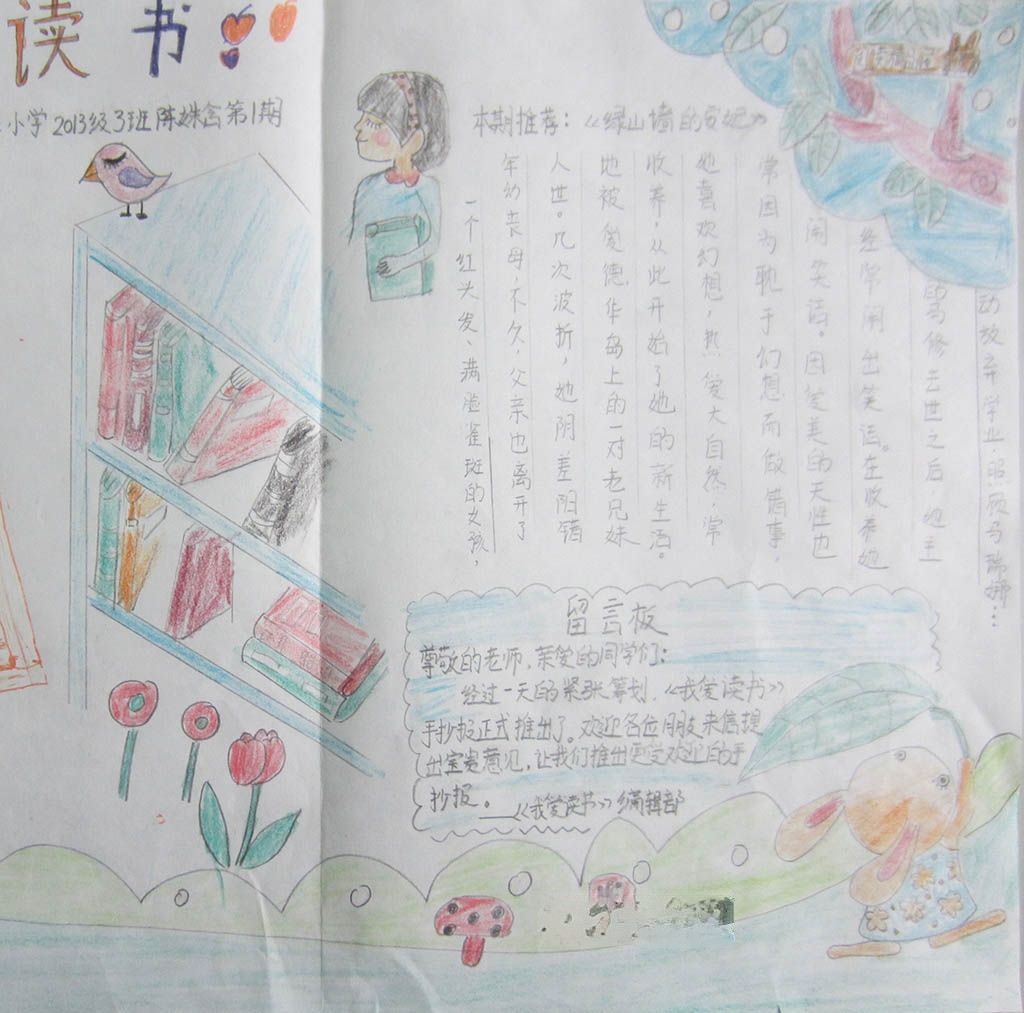 读书
小学2013级3班陈姝含第1期
本期推荐：《绿山墙的安妮》
一个红头发、满脸雀斑的女孩，
年幼丧母，不久，父亲也离开了
人世。几次波折，她阴差阳错
地被爱德华岛上的一对老兄妹
收养，从此开始了她的新生活。
她喜欢幻想，热爱大自然，常
常因为耽于幻想而做错事，
闹笑话。因爱美的天性也
经常闹出笑话。在收养她
的马修去世之后，她主
动放弃学业，照顾马瑞娜…
留言板
尊敬的老师，亲爱的同学们：
经过一天的紧张筹划，《我爱读书》
手抄报正式推出了。欢迎各位朋友来信提
出宝贵意见，让我们推出更受欢迎的手
抄报。
——《我爱读书》编辑部